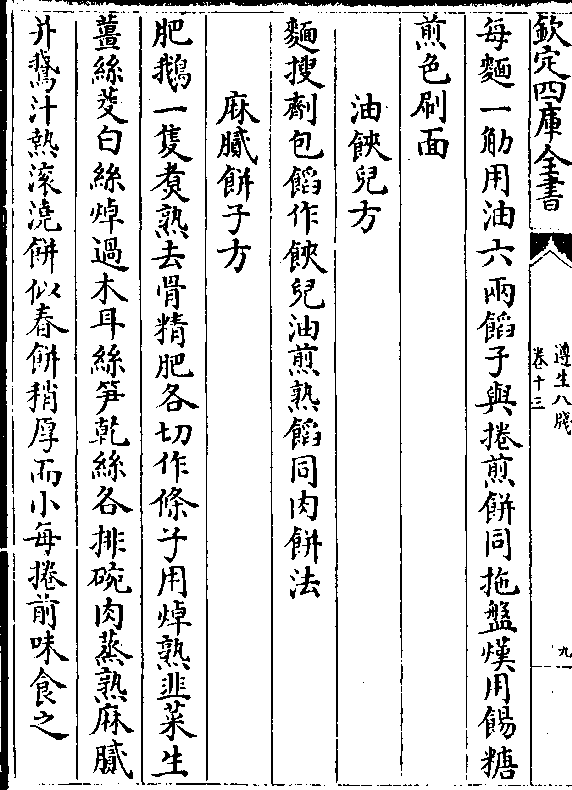 欽定四庫全書
遵生八牋
卷十三
九
每麵一觔用油六兩餡子與捲煎餅同拖盤熯用餳糖
煎色刷面
油餃兒方
麵搜劑包餡作餃兒油煎熟餡同肉餅法
麻膩餅子方
肥鵝一隻煑熟去骨精肥各切作條子用焯熟韭菜生
薑絲茭白絲焯過木耳絲笋乾絲各排碗肉蒸熟麻膩
并鵞汁熱滾澆餅似春餅稍厚而小每捲前味食之